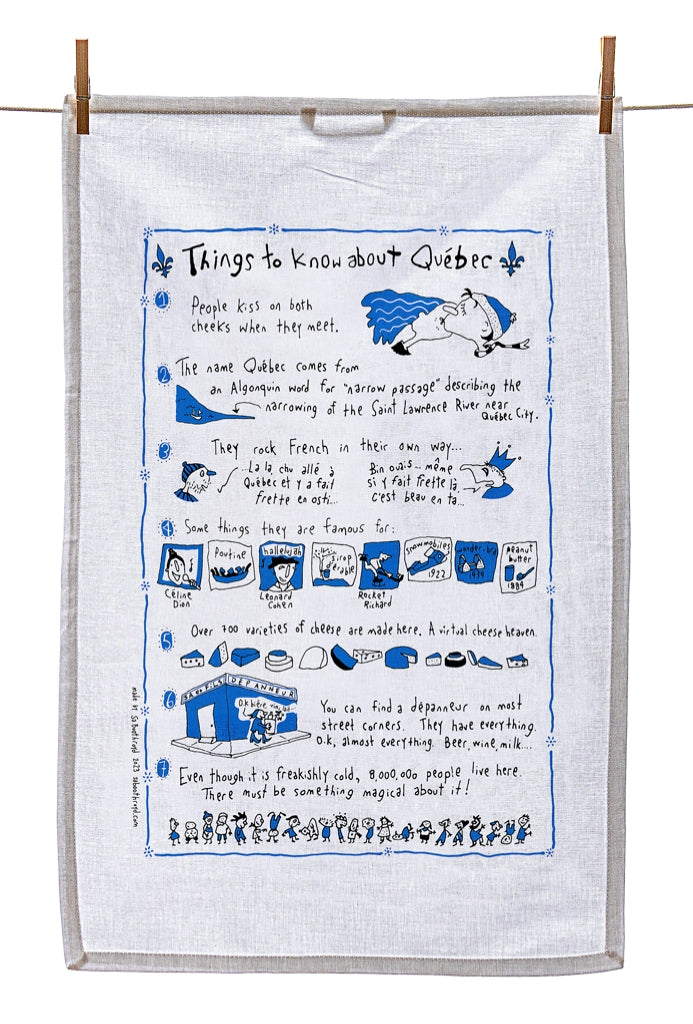 Things to know about Québec
1
People kiss on both
cheeks when they meet.
2
The name Québec comes from
an Algonquin word for "narrow passage" describing the
narrowing of the Saint Lawrence River near
Québec City.
3
They rock French in their own way...
...La la chu allé à
Québec et y a fait
frette en osti...
Bin ouais... même
si y fait frette là
c'est beau en ta...
4
Some things they are famous for:
Céline
Dion
Poutine
hallelujah
Leonard
Cohen
sirop
d'érable
Rocket
Richard
snowmobiles
1922
wonder-bra
1939
peanut
butter
1884
5
Over 700 varieties of cheese are made here. A virtual cheese heaven.
6
DÉPANNEUR
O.K bière, vin, lait...
You can find a dépanneur on most
street corners. They have everything.
O.K, almost everything. Beer, wine, milk...
7
Even though it is freakishly cold, 8,000,000 people live here.
There must be something magical about it!
made by SaBoothroyd 2023 saboothroyd.com